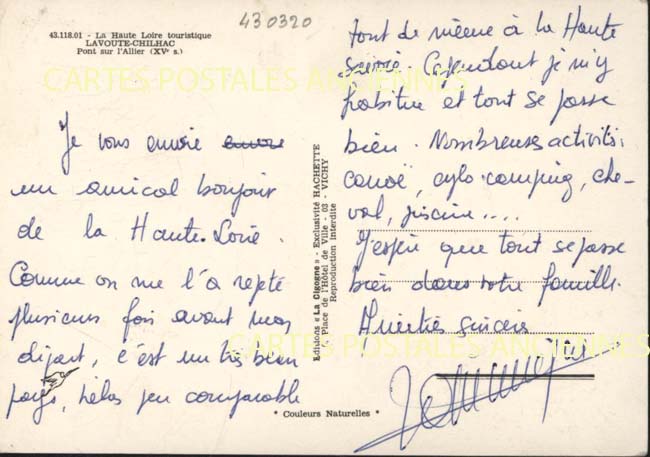 430320
43.118.01 - La Haute Loire touristique
LAVOUTE-CHILHAC
Pont sur l'Allier (XVe s.)
CARTES POSTALES ANCIENNES
Je vous envoie encore
un amical bonjour
de la Haute-Loire.
Comme on me l'a répété
plusieurs fois avant mon
départ, c'est un très beau
pays, hélas peu comparable
tout de même à la Haute
Savoie. Cependant je m'y
habitue et tout se passe
bien. Nombreuses activités:
canoë, cyclo-camping, che-
val, piscine....
J'espère que tout se passe
bien dans votre famille.
Amitiés sincères
Editions « La Cigogne » - Exclusivité HACHETTE
Place de l'Hôtel de Ville - 03 - VICHY
Reproduction Interdite
CARTES POSTALES ANCIENNES
* Couleurs Naturelles *